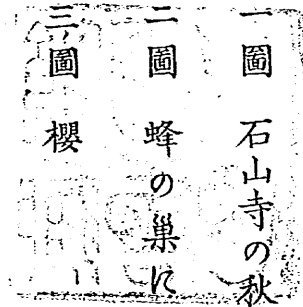 一圖 石山寺の秋
二圖 蜂の巣に
三圖 櫻